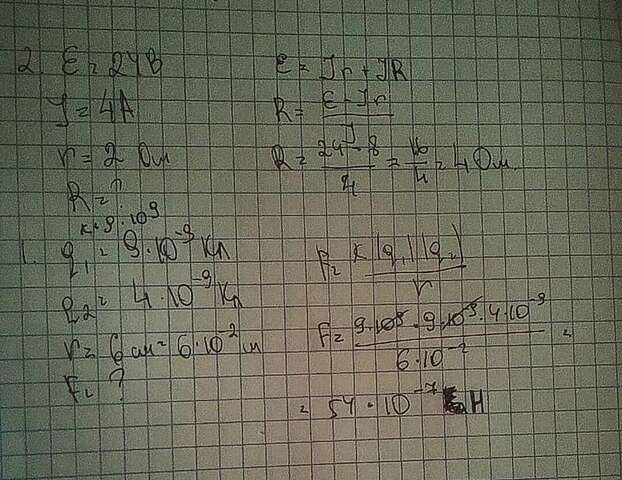 2. ε = 24В
J = 4А
r = 2 Ом
R = ?
ε = Jr + JR
R = ε - Jr / J
R = 24 - 8 / 4 = 16 / 4 = 4 Ом.
k = 9 · 10⁹
1. q₁ = 9 · 10⁻⁹ Кл
q₂ = 4 · 10⁻⁹ Кл
r = 6 см = 6 · 10⁻² м
F = ?
F = k |q₁| |q₂| / r
F = 9 · 10⁹ · 9 · 10⁻⁹ · 4 · 10⁻⁹ / 6 · 10⁻² =
= 54 · 10⁻⁷ Н